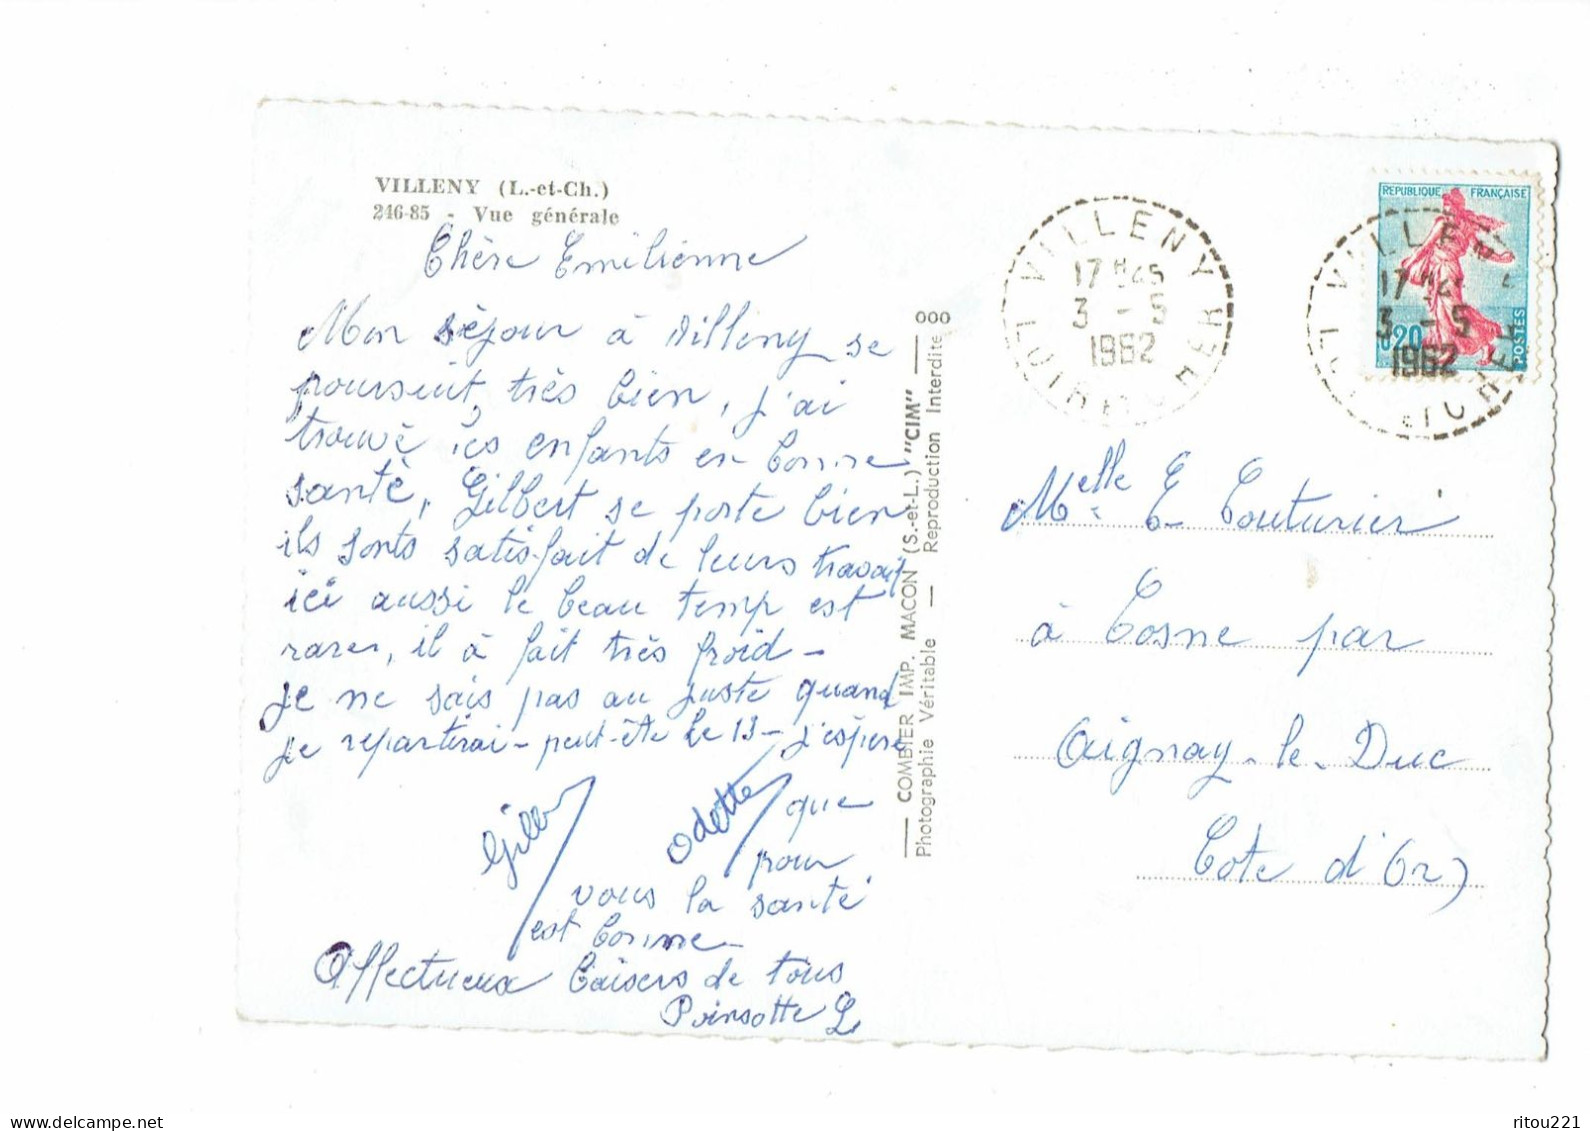 VILLENY (L.-et-Ch.)
246-85 - Vue générale
Chère Emilienne
Mon séjour à Villeny se
poursuit, très bien, j'ai
trouvé les enfants en bonne
santé, Gilbert se porte bien
ils sonts satisfait de leurs travail
ici aussi le beau temp est
rares, il à fait très froid -
je ne sais pas au juste quand
je repartirai - peut-ête le 13 - j'espère
que
pour
vous la santé
est bonne -
Affectueux baisers de tous
Poinsotte L
Odette
OOO
COMBIER IMP. MACON (S.-et-L.) "CIM"
Photographie Véritable — Reproduction Interdite
VILLENY
LOIR-ET-CHER
17 H 45
3 - 5
1962
REPUBLIQUE FRANÇAISE
0,20
POSTES
VILLENY
LOIR-ET-CHER
17 H 45
3 - 5
1962
Melle E Couturier
à Cosne par
Aignay-le-Duc
Cote d'Or)
ritou221